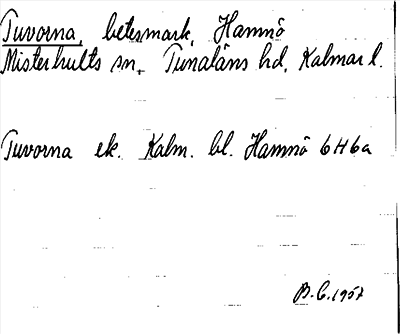 Tuvorna, betesmark, Hamnö
Misterhults sn, Tunaläns hd, Kalmar l.
Tuvorna ek. Kalm. bl. Hamnö 6H6a
B.C. 1957